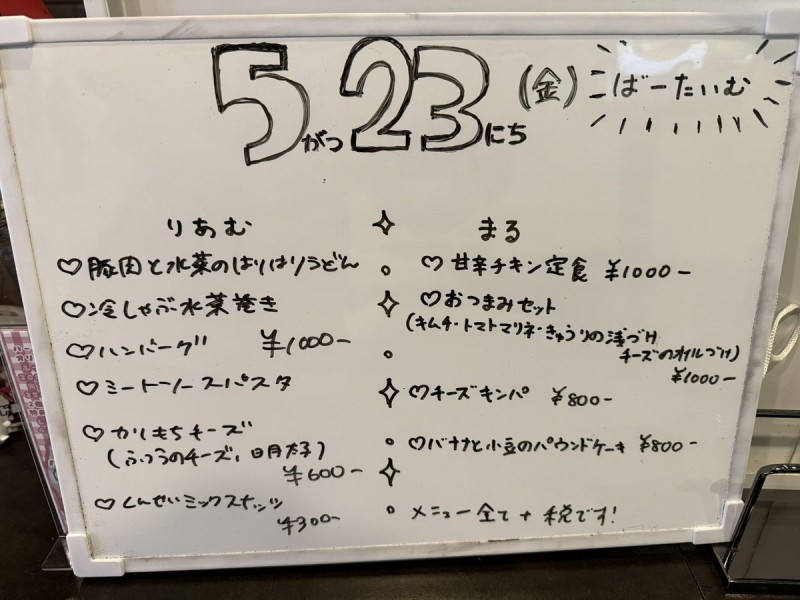 5がつ23にち (金) こばーたいむ
りあむ
♡豚肉と水菜のはりはりうどん
♡冷しゃぶ水菜巻き
♡ハンバーグ ¥1000-
♡ミートソースパスタ
♡かりもちチーズ
(ふつうのチーズ, 明太子)
¥600-
♡くんせいミックスナッツ
¥300-
まる
♡甘辛チキン定食 ¥1000-
♡おつまみセット
(キムチ・トマトマリネ・きゅうりの浅づけ
チーズのオイルづけ)
¥1000-
♡チーズキンパ ¥800-
♡バナナと小豆のパウンドケーキ ¥800-
メニュー全て+税です!